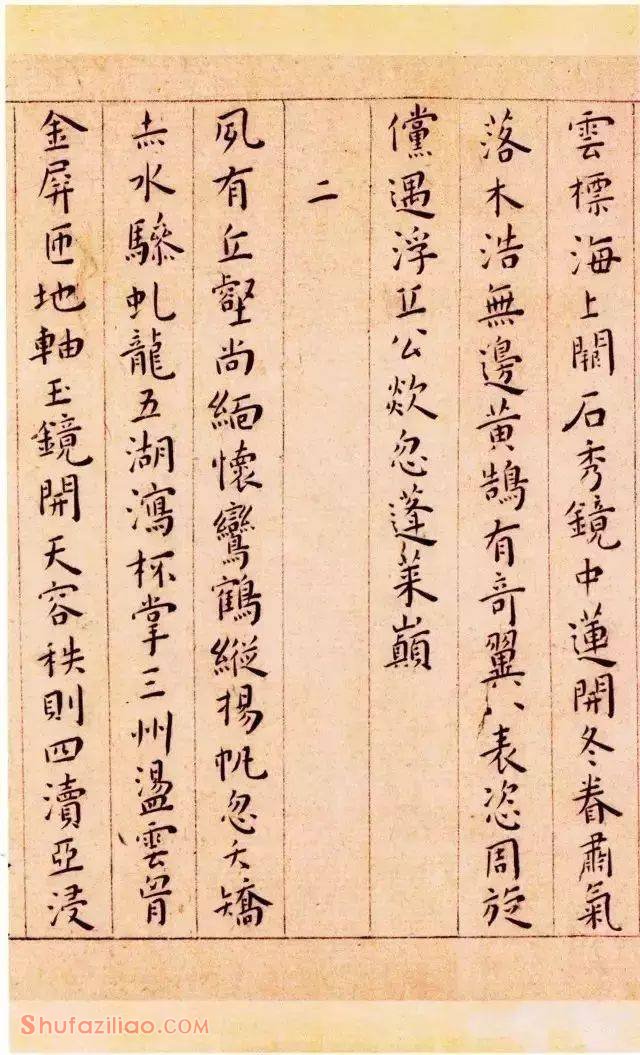 雲標海上關石秀鏡中蓮開冬眷肅氣
落木浩無邊黃鵠有奇翼八表恣周旋
儻遇浮丘公欻忽蓬萊巔
二
夙有丘壑尚緬懷鸞鶴縱揚帆忽夭矯
赤水驂虬龍五湖瀉杯掌三州盪雲胷
金屏匝地軸玉鏡開天容秩則四瀆亞浸
Shufaziliao.COM